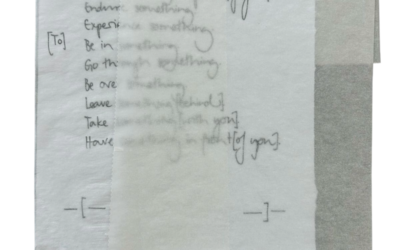 Endure something
Experience something
[To] Be in something
Go through something
Be over something
Leave something [behind]
Take something [with you]
Have something in front [of you].